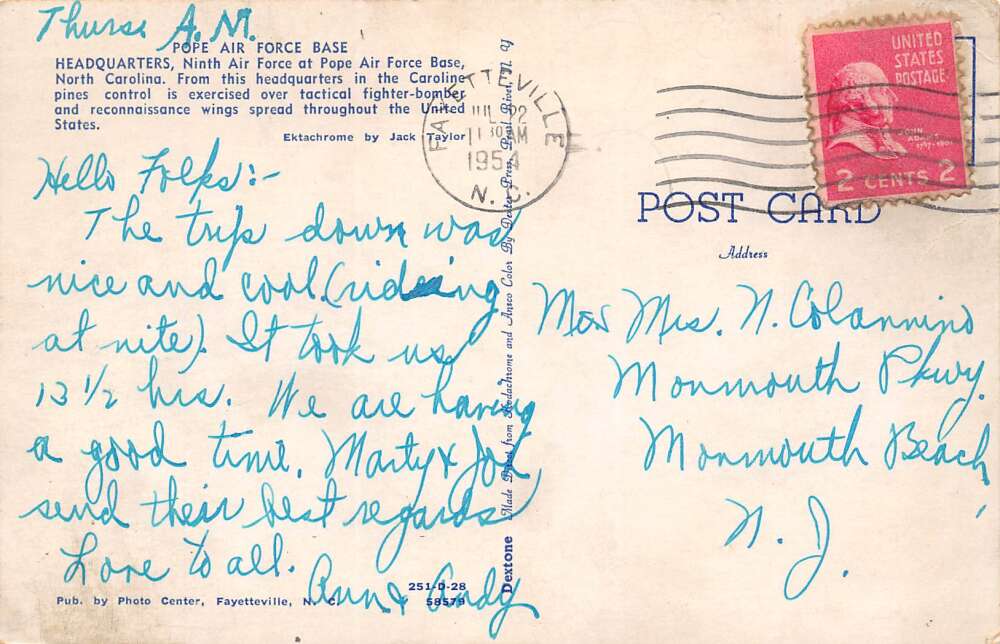 Thurs. A.M.
POPE AIR FORCE BASE
HEADQUARTERS, Ninth Air Force at Pope Air Force Base,
North Carolina. From this headquarters in the Caroline
pines control is exercised over tactical fighter-bomber
and reconnaissance wings spread throughout the United
States.
Ektachrome by Jack Taylor
Hello Folks:-
The trip down was
nice and cool. (riding
at nite). It took us
13 1/2 hrs. We are having
a good time. Marty & Joe
send their best regards
Love to all.
Ann & Andy
251-D-28
58579
Pub. by Photo Center, Fayetteville, N. C.
Dextone Made Direct from Kodachrome and Ansco Color By Dexter Press, Pearl River, N. Y.
FAYETTEVILLE
JUL 22
11 30 AM
1954
N. C.
UNITED
STATES
POSTAGE
JOHN
ADAMS
1797-1801
2 CENTS 2
POST CARD
Address
M & Mrs. N. Colannino
Monmouth Pkwy.
Monmouth Beach,
N. J.